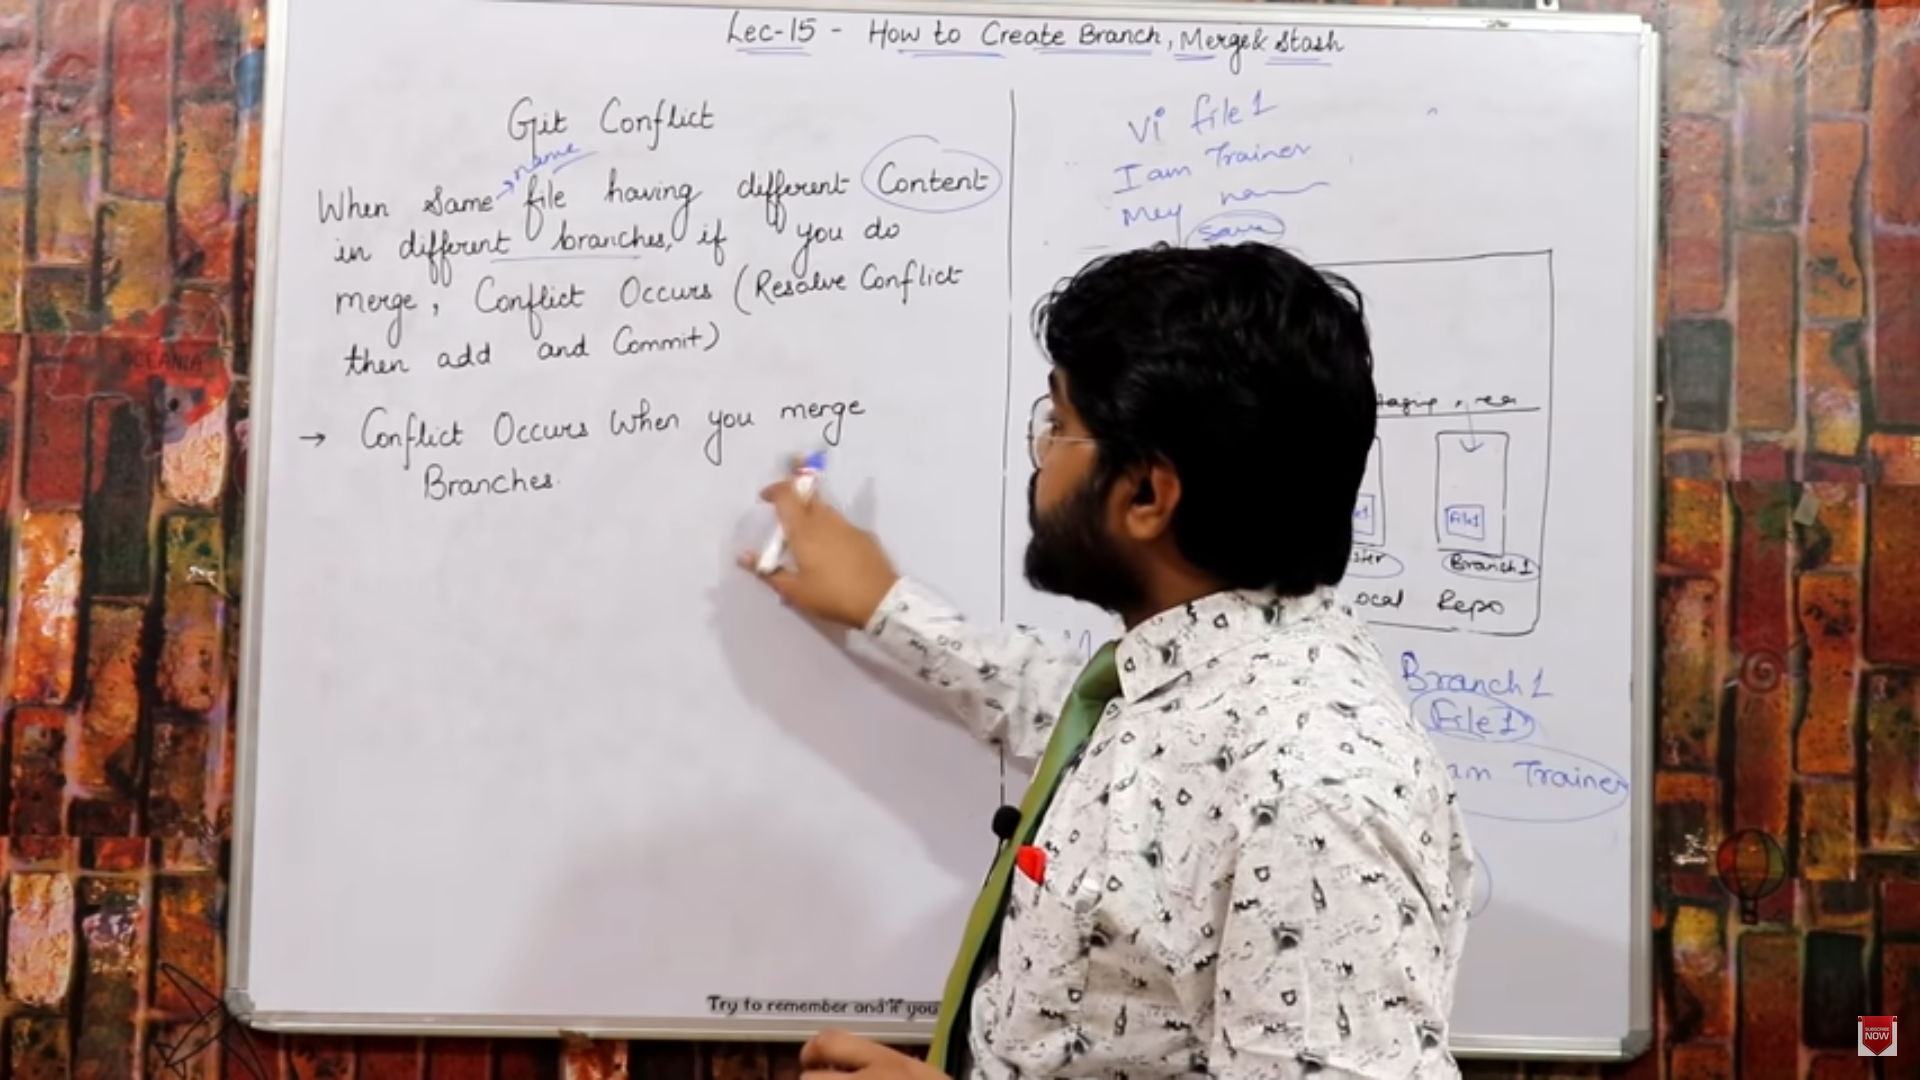 Lec-15 - How to Create Branch, Merge & Stash
Git Conflict
name
When Same file having different Content
in different branches, if you do
merge, Conflict Occurs (Resolve Conflict
then add and Commit)
→ Conflict Occurs When you merge
Branches.
Vi file1
I am Trainer
Mey
File1
Branch1
ocal Repo
Branch1
File1
am Trainer
Try to remember and if you
OCEANIA
SUBSCRIBE
NOW